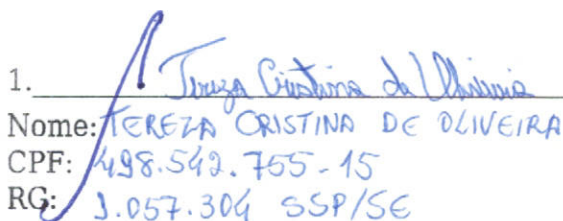 1. Tereza Cristina de Oliveira
Nome: TEREZA CRISTINA DE OLIVEIRA
CPF: 498.542.755-15
RG: 1.057.304 SSP/SE